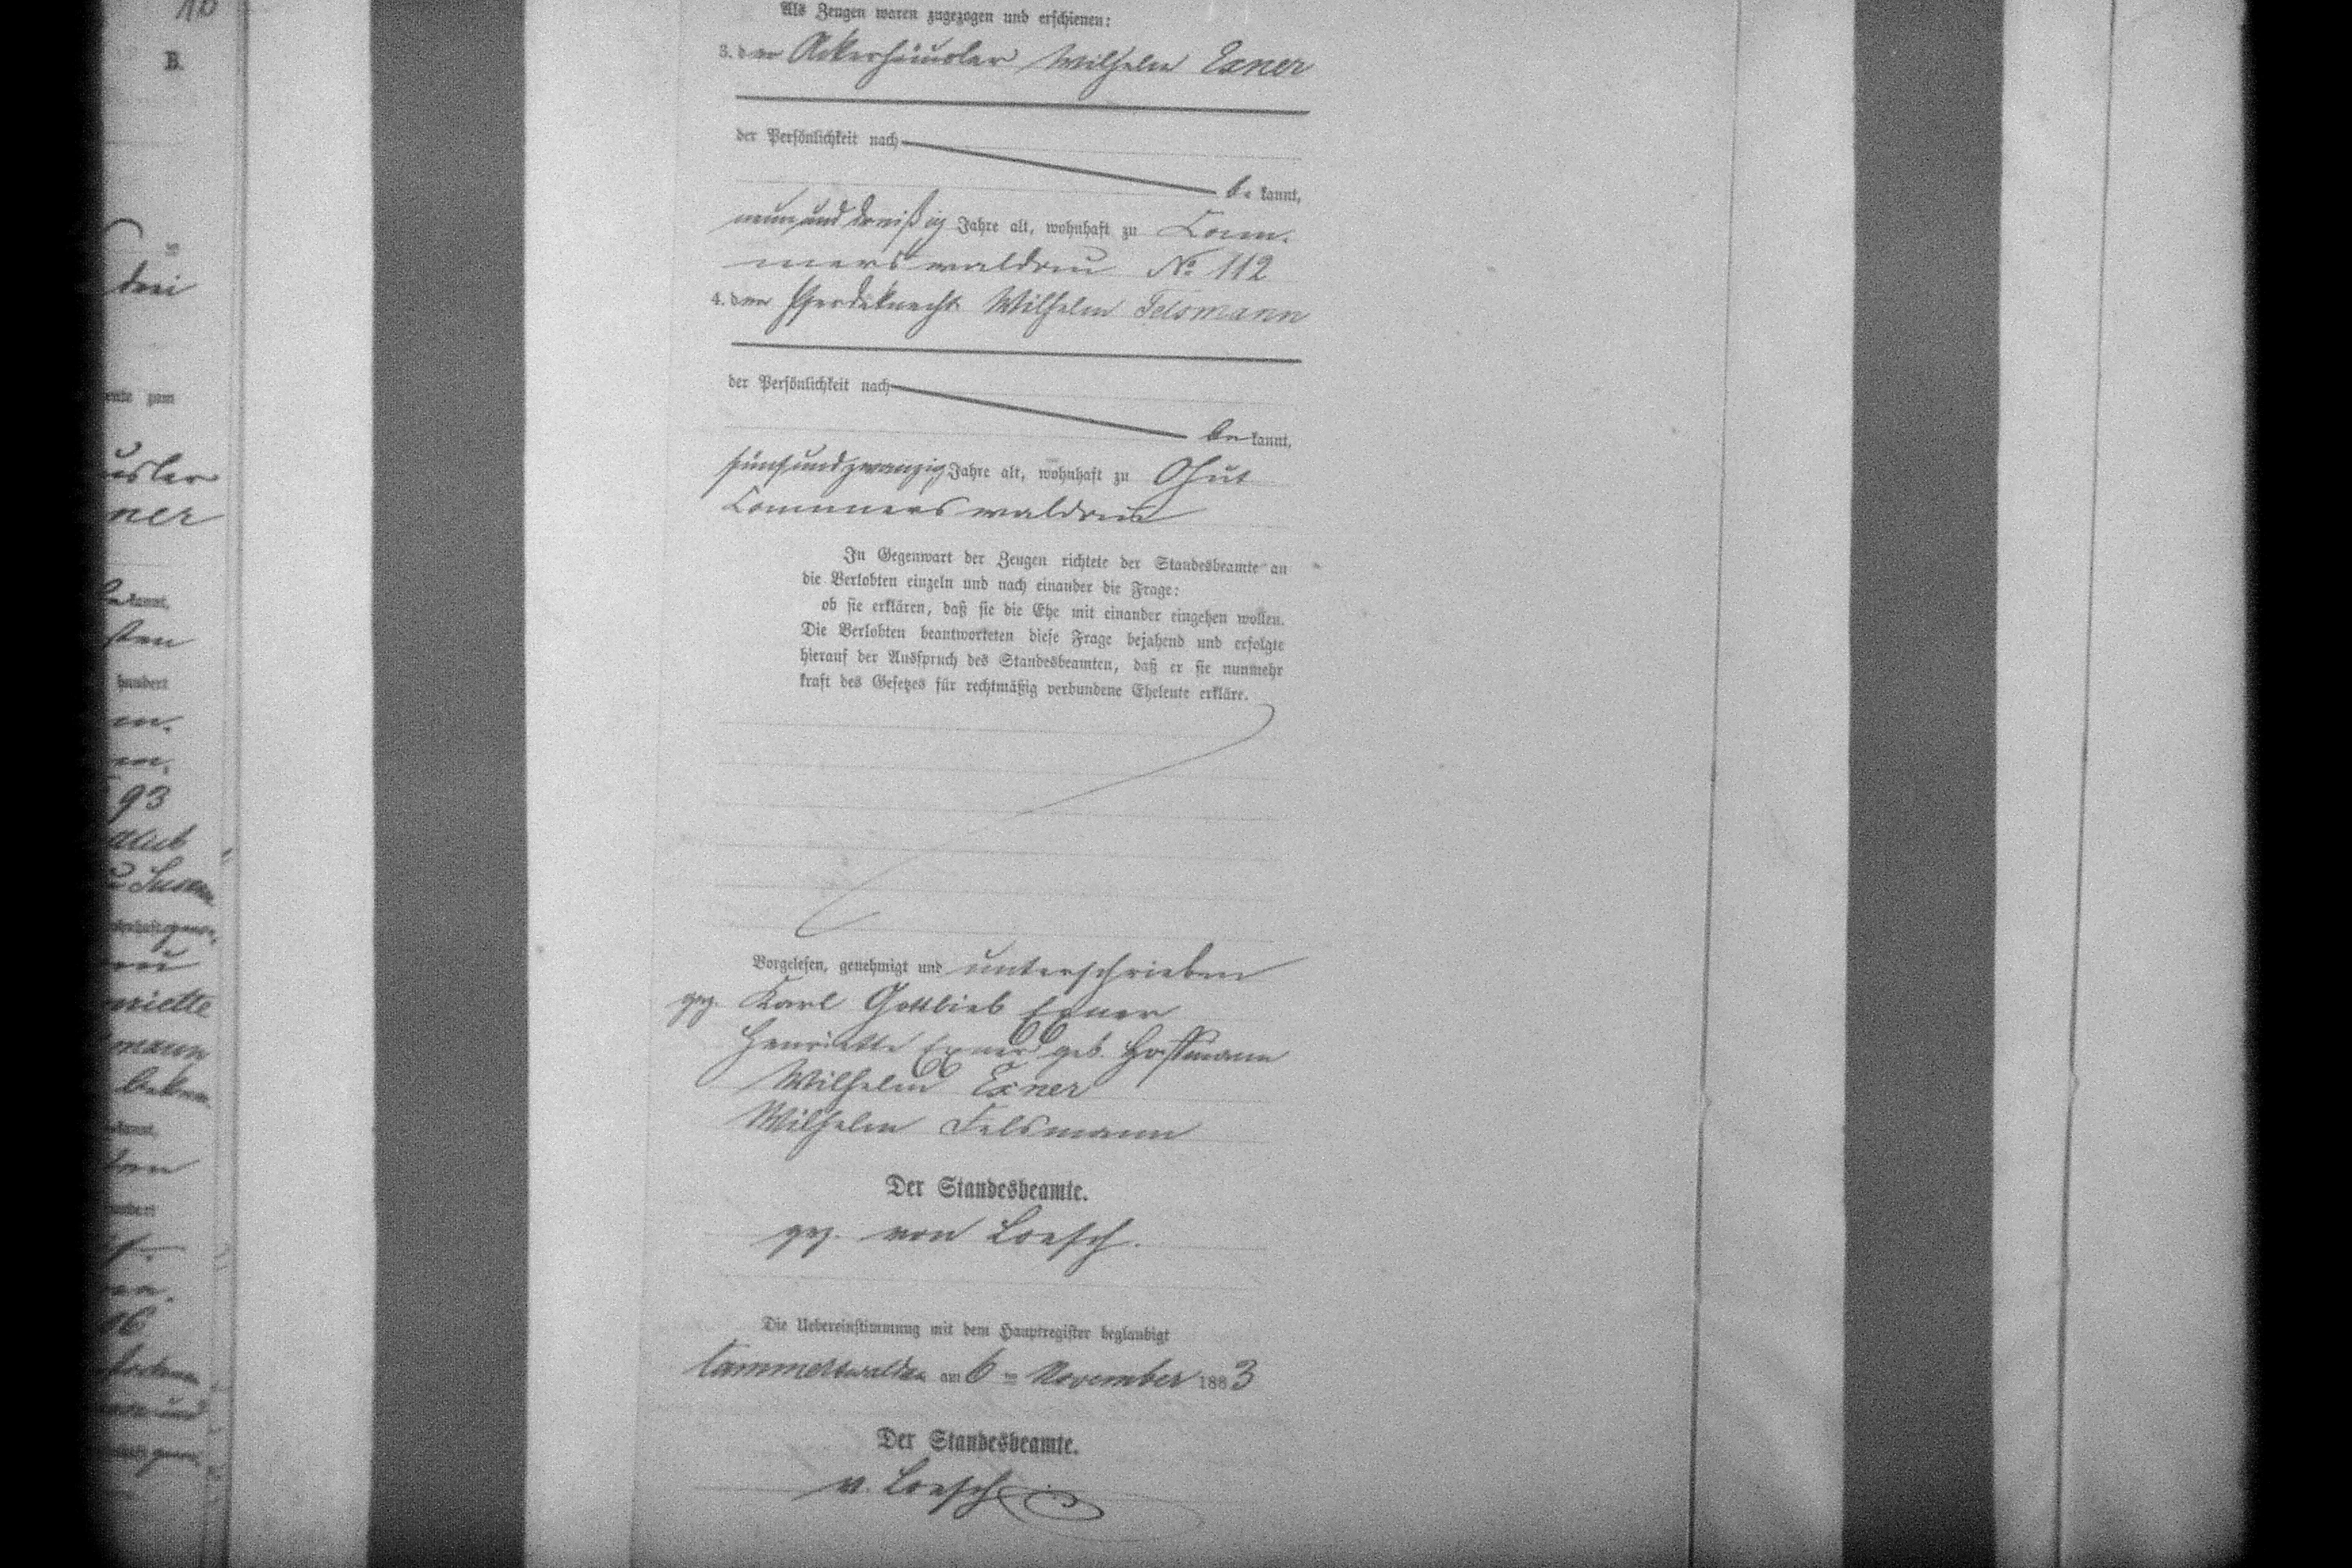 10
B.
drei
usler
ner
kannt,
sten
hundert
93
riette
mann
16
Als Zeugen waren zugezogen und erschienen:
3. der Ackerhäusler Wilhelm Exner
der Persönlichkeit nach
be kannt,
neununddreißig Jahre alt, wohnhaft zu Cam-
merswaldau № 112
4. der Pferdeknecht Wilhelm Felsmann
der Persönlichkeit nach
be kannt,
fünfundzwanzig Jahre alt, wohnhaft zu Gut
Cammerswaldau
In Gegenwart der Zeugen richtete der Standesbeamte an
die Verlobten einzeln und nach einander die Frage:
ob sie erklären, daß sie die Ehe mit einander eingehen wollen.
Die Verlobten beantworteten diese Frage bejahend und erfolgte
hierauf der Ausspruch des Standesbeamten, daß er sie nunmehr
kraft des Gesetzes für rechtmäßig verbundene Eheleute erkläre.
Vorgelesen, genehmigt und unterschrieben
gez. Karl Gottlieb Exner
Henriette Exner geb. Hoffmann
Wilhelm Exner
Wilhelm Felsmann
Der Standesbeamte.
gez. von Loesch.
Die Uebereinstimmung mit dem Hauptregister beglaubigt
Cammerswaldau am 6 ten November 1883
Der Standesbeamte.
v. Loesch